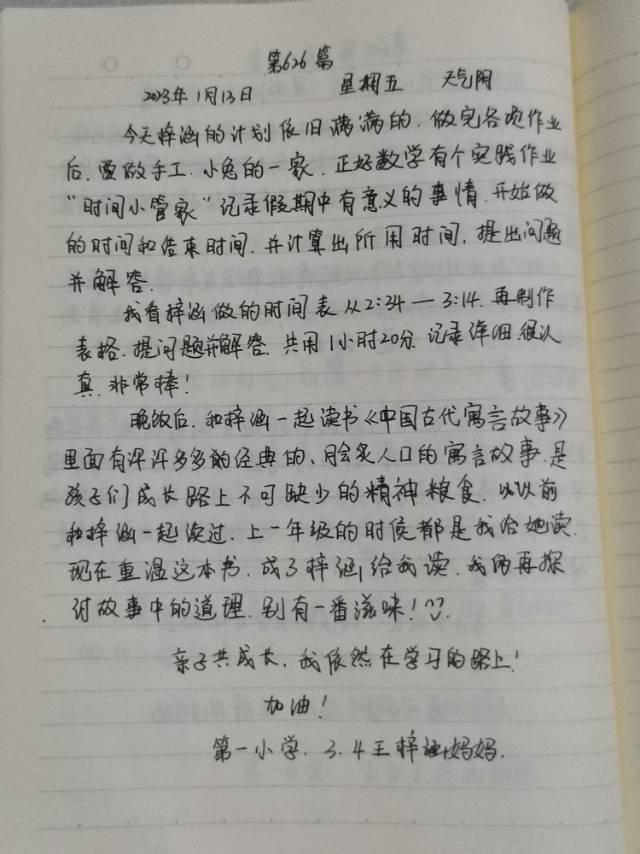 第626篇
2023年1月13日 星期五 天气阴
今天梓涵的计划依旧满满的，做完各项作业
后，要做手工，小兔的一家，正好数学有个实践作业
“时间小管家”记录假期中有意义的事情，开始做
的时间和结束时间，并计算出所用时间，提出问题
并解答。
我看梓涵做的时间表从2:34—3:14，再制作
表格，提问题并解答，共用1小时20分，记录详细，很认
真，非常棒！
晚饭后，和梓涵一起读书《中国古代寓言故事》
里面有许许多多的经典的、脍炙人口的寓言故事，是
孩子们成长路上不可缺少的精神粮食，以前
和梓涵一起读过，上一年级的时侯都是我给她读，
现在重温这本书，成了梓涵给我读，我俩再探
讨故事中的道理，别有一番滋味！
亲子共成长，我依然在学习的路上！
加油！
第一小学，3.4王梓涵妈妈.